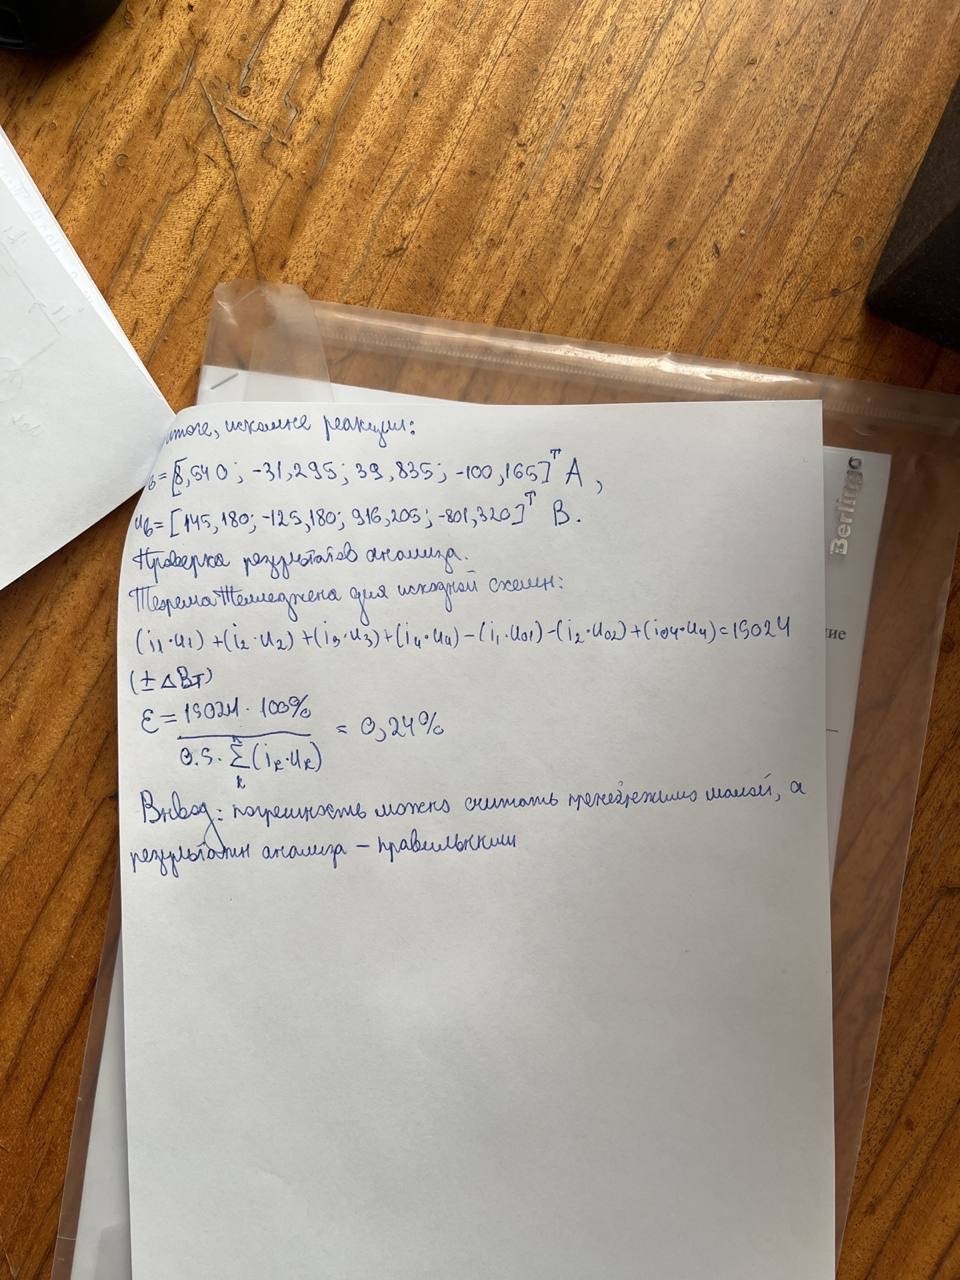 итоге, искомые реакции:
б = [8,540; -31,295; 39,835; -100,165]ᵀ A,
uб = [145,180; -125,180; 916,205; -801,320]ᵀ В.
Проверка результатов анализа.
Теорема Телледжена для исходной схемы:
(i1·u1) + (i2·u2) + (i3·u3) + (i4·u4) – (i1·u01) – (i2·u02) + (i04·u4) = 19024
(± ΔВт)
ε = 19024 · 100% / 0.5 · Σk (ik·uk) = 0,24%
Вывод: погрешность можно считать пренебрежимо малой, а
результаты анализа – правильными
Berlingo
ие